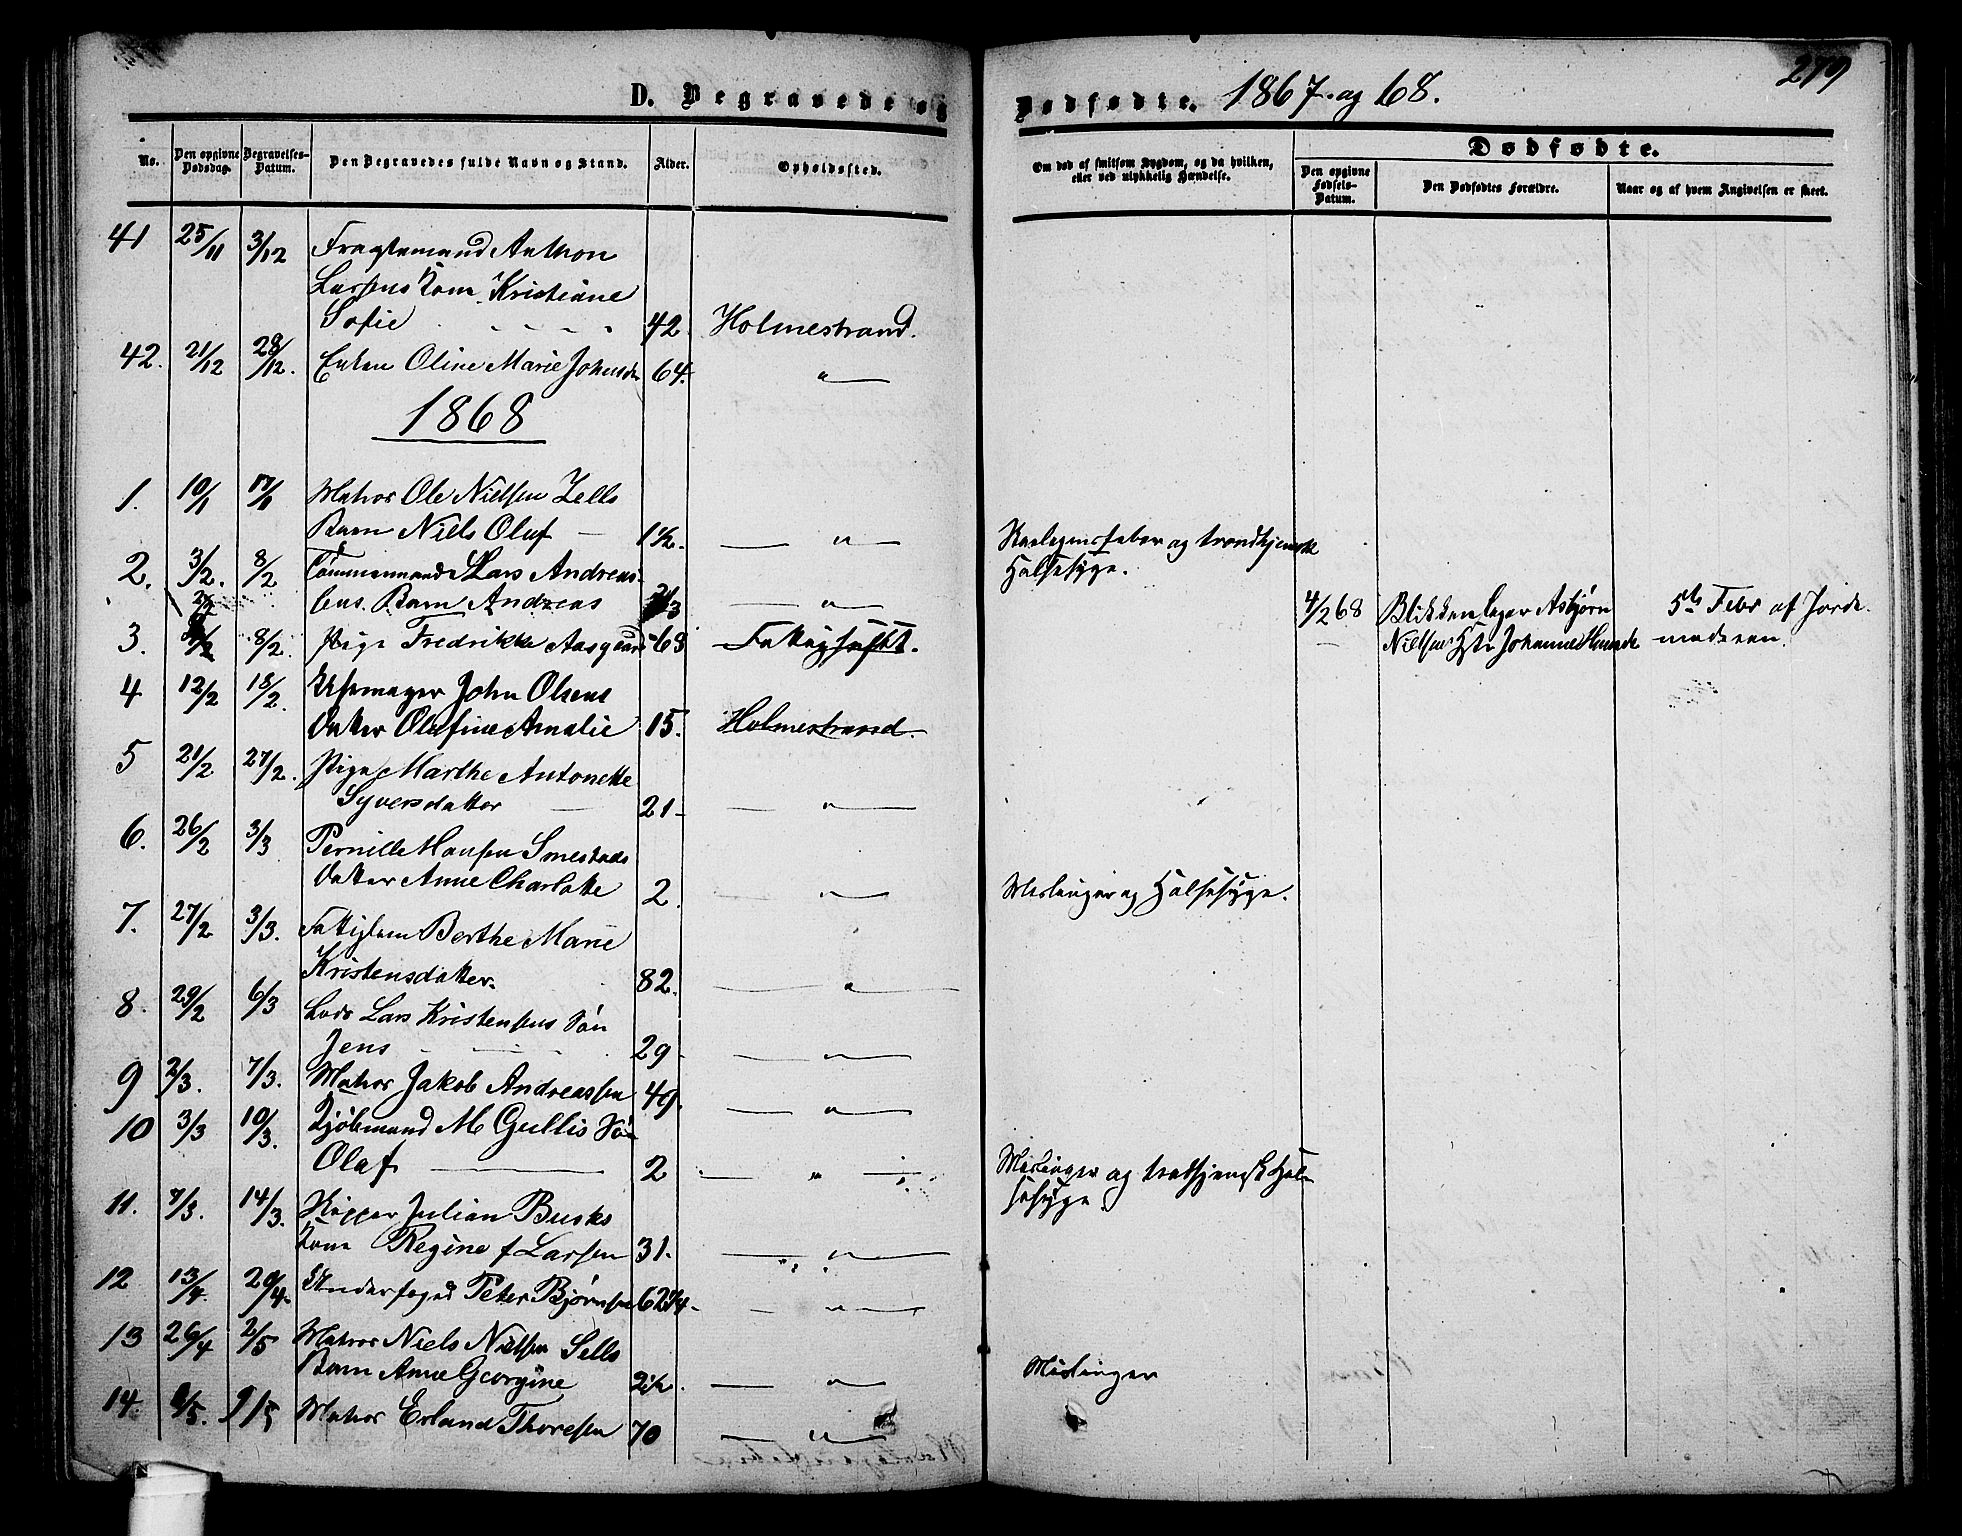 279
D. Begravede og Dødfødte. 1867 og 68.
No. Den opgivne Dødsdag. Begravelses-Datum. Den Begravedes fulde Navn og Stand. Alder. Opholdssted. Om død af smitsom Sygdom, og da hvilken, eller ved ulykkelig Hændelse. Dødfødte. Den opgivne Fødsels-Datum. Den Dødfødtes Forældre. Naar og af hvem Angivelsen er skeet.
41 25/11 3/12 Fragtemand Anthon
Larsens Kone Kristiane
Sofie 42 Holmestrand.
42. 21/12 28/12. Enken Oline Marie 64. "
1868
1. 10/1 17/1 Matros Ole Nielsen Zells
Barn Niels Oluf — 1½. — " — Skarlagensfeber og trondhjemsk
Halsesyge.
2. 3/2. 8/2 Tømmermand Lars Andrea-
sens Barn Andreas — " — 4/2 68 Blikkenslager Asbjørn 5te Febr af Jorde-
3. 8/2. Pige Fredrikke 68 Fattighuset. Nielsen Hstr Johanne moderen.
4 12/2 18/2. Uhrmager John Olsens
Datter Olefine Amalie 15. Holmestrand.
5 21/2 27/2. Pige Marthe Antonette
Syversdatter 21- — " —
6. 26/2 3/3 Pernille Hansen Smestads
Datter Anne Charlotte 2. — " — Meslinger og Halsesyge.
7. 27/2 3/3. Fattiglem Berthe Marie
Kristensdatter. 82. — " —
8. 29/2 6/3 Lods Lars Kristensens Søn
Jens 29 — " —
9 2/3. 7/3. Matros Jakob Andreassen 49. — " —
10 3/3 10/3. Kjøbmand M Gullis Søn
Olaf — 2 — " — Meslinger og trondhjemsk Hal-
sesyge.
11. 7/3. 14/3. Skipper Julian Busks
Kone Regine f Larsen 31. — " —
12 13/4. 20/4. Underfoged Peter Bjørnsen 62¾. — " —
13 26/4 2/5 Matros Niels Nielsen Sells
Barn Anne Georgine 2½. — " — Meslinger
14. /5. 9/5 Matros Erland Thoresen 70 — " —